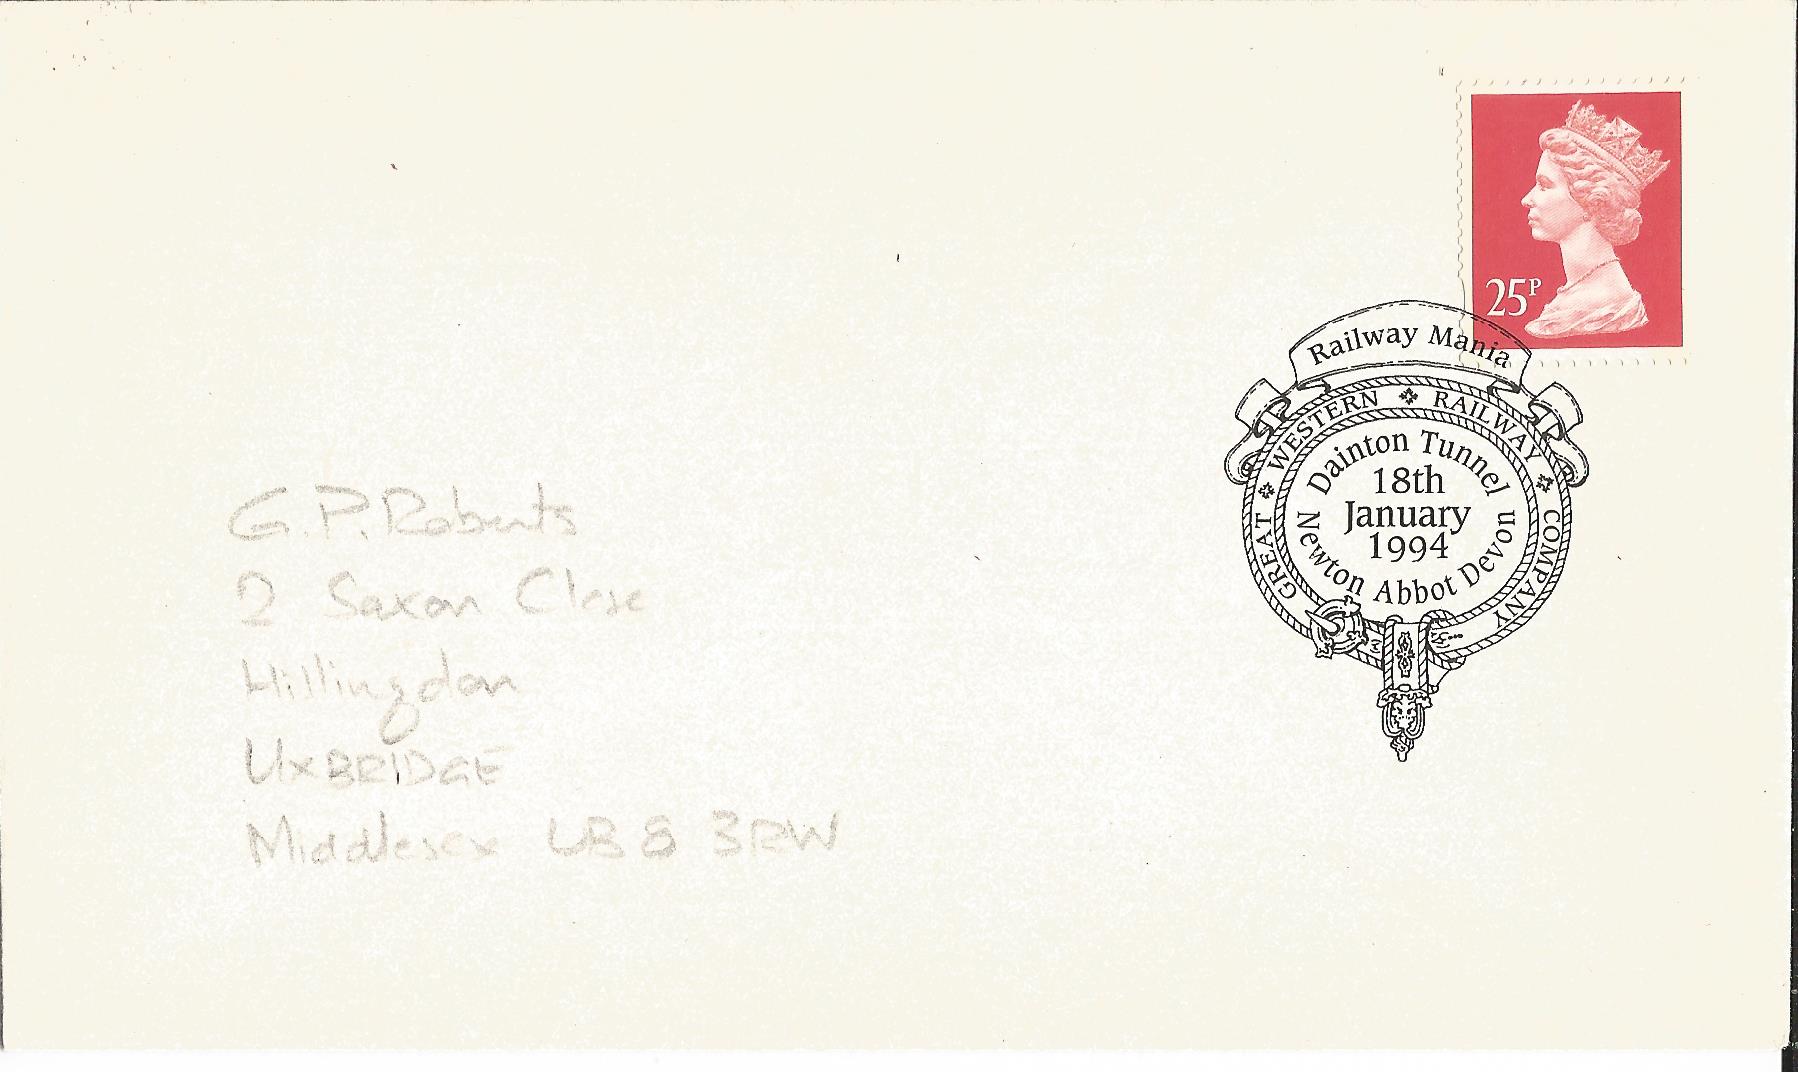 25P
Railway Mania
GREAT WESTERN RAILWAY COMPANY
Dainton Tunnel
18th
January
1994
Newton Abbot Devon
G.P. Roberts
2 Saxon Close
Hillingdon
UXBRIDGE
Middlesex UB8 3RW